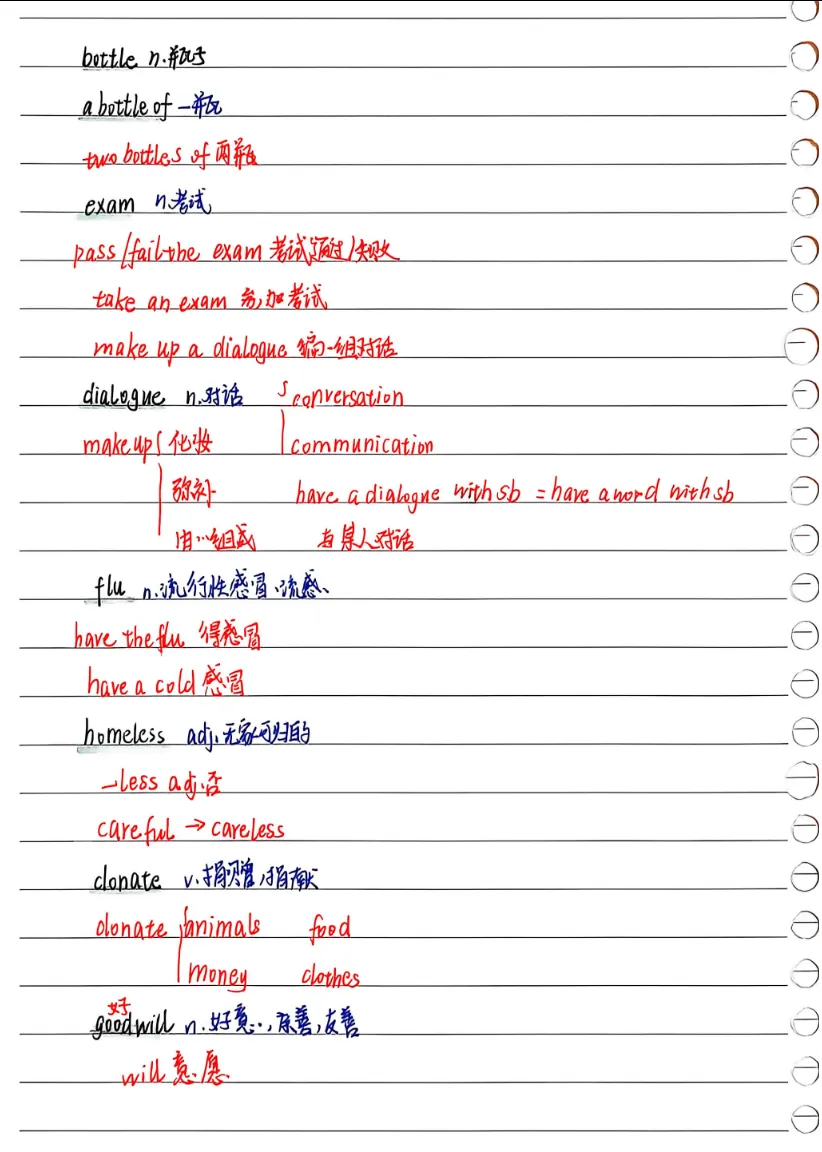 bottle n.瓶子
a bottle of 一瓶
two bottles of 两瓶
exam n.考试
pass/fail the exam 考试通过/失败
take an exam 参加考试
make up a dialogue 编一组对话
dialogue n.对话 conversation
make up 化妆 communication
弥补 have a dialogue with sb = have a word with sb
由…组成 与某人对话
flu n.流行性感冒、流感、
have the flu 得感冒
have a cold 感冒
homeless adj.无家可归的
-less adj.否
careful → careless
donate v.捐赠,捐献
donate animals food
money clothes
好
goodwill n.好意,慈善,友善
will 意愿